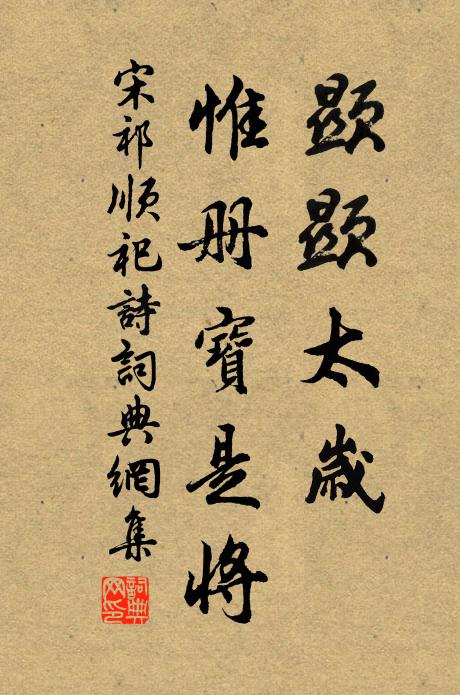 顯顯太歲
惟册寶是將
宋祁順祀詩詞典網集
詞典網印